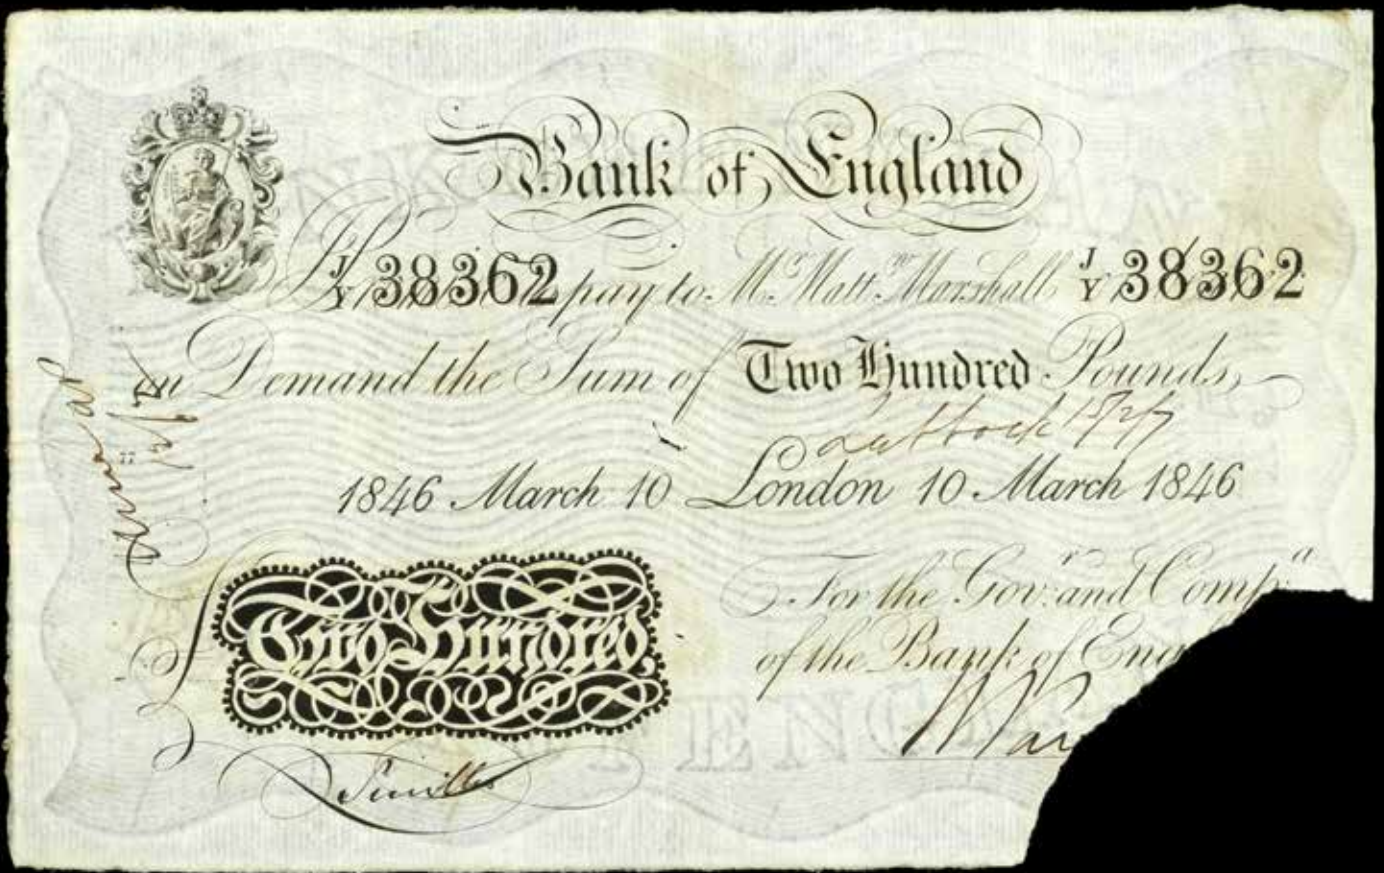 Bank of England
J/Y 38362 pay to Mr. Matt.w Marshall J/Y 38362
Demand the Sum of Two Hundred Pounds
Lubbock
1846 March 10 London 10 March 1846
For the Gov.r and Comp.a
of the Bank of Eng
£ Two Hundred